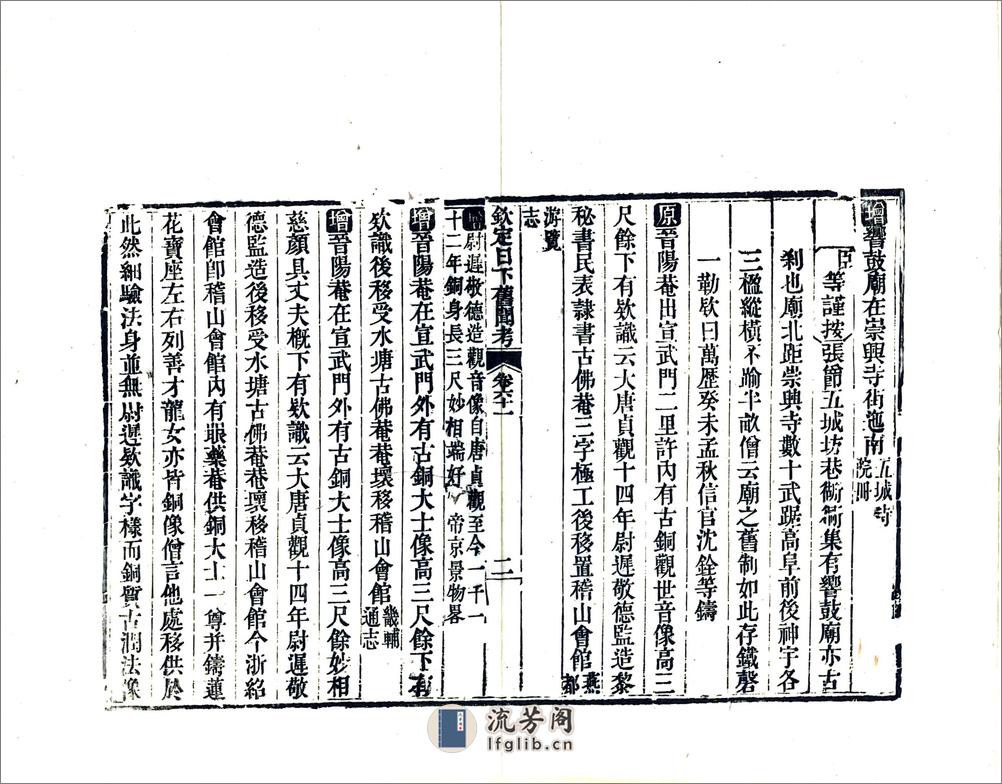 增響鼓廟在崇興寺街迤南五城寺院冊
臣等謹按張爵五城坊巷衚衕集有響鼓廟亦古
刹也廟北距崇興寺數十武踞高阜前後神宇各
三楹縱橫不踰半畝僧云廟之舊制如此存鐵磬
一勒欵曰萬歷癸未孟秋信官沈銓等鑄
原晉陽菴出宣武門二里許内有古銅觀世音像高三
尺餘下有欵識云大唐貞觀十四年尉遲敬德監造黎
秘書民表隷書古佛菴三字極工後移置稽山會館燕都
游覽志
欽定日下舊聞考 卷六十一 二
增尉遲敬德造觀音像自唐貞觀至今一千一
十二年銅身長三尺妙相端好帝京景物畧
增晉陽菴在宣武門外有古銅大士像高三尺餘下有
欵識後移受水塘古佛菴菴壞移稽山會館畿輔通志
增晉陽菴在宣武門外有古銅大士像高三尺餘妙相
慈顔具丈夫概下有欵識云大唐貞觀十四年尉遲敬
德監造後移受水塘古佛菴菴壞移稽山會館今浙紹
會館卽稽山會館内有眼藥菴供銅大士一尊并鑄蓮
花寶座左右列善才龍女亦皆銅像僧言他處移供於
此然細驗法身並無尉遲欵識字樣而銅質古潤法像
流芳阁
lfglib.cn